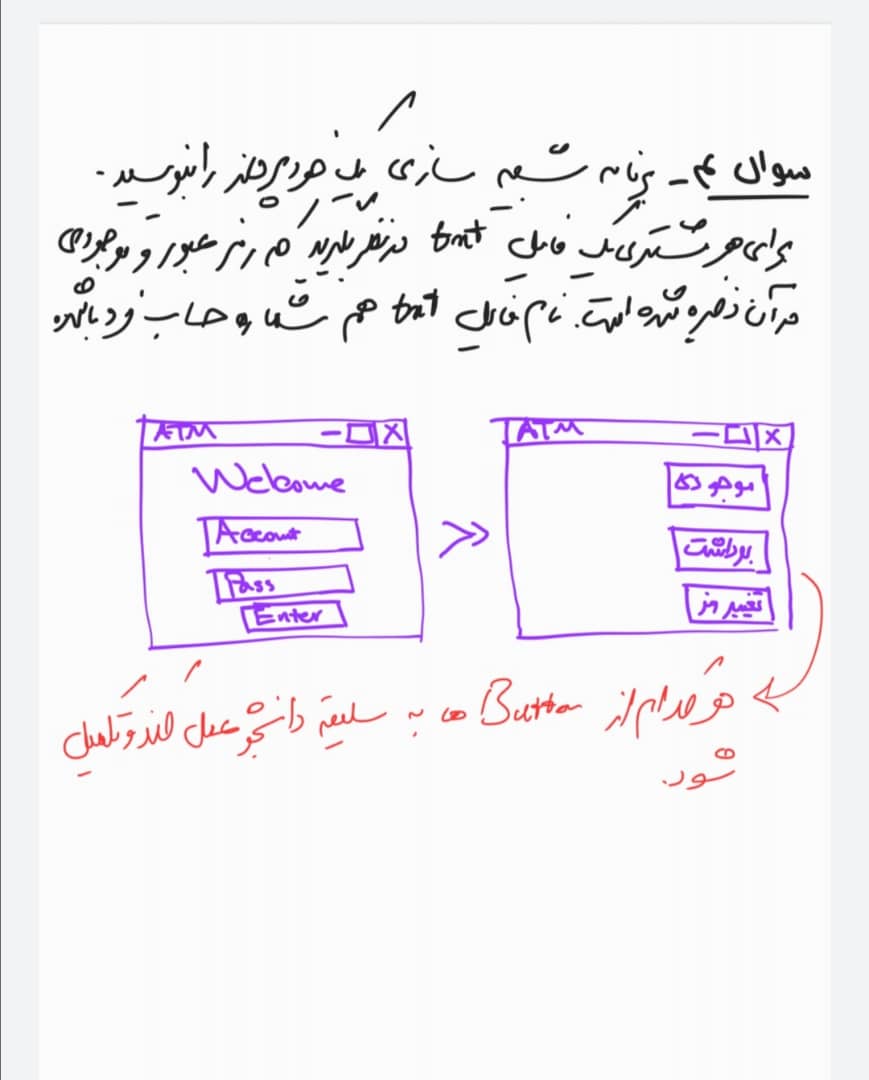 سوال ۴- برنامه شبیه سازی یک خودپرداز را بنویسید.
برای هر مشتری یک فایل txt در نظر بگیرید که رمز عبور و موجودی
در آن ذخیره شده است. نام فایل txt هم شماره حساب فرد باشد
ATM
Welcome
Account
Pass
Enter
>>
ATM
موجودی
برداشت
تغییر رمز
هر کدام از Button ها به سلیقه دانشجو عمل کند و تکمیل
شود.